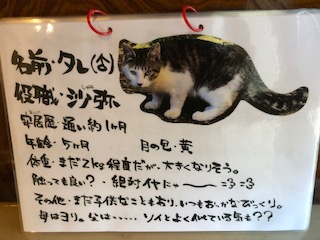 名前・タレ(♂)
役職・沙弥
寺居歴・通い約1ヶ月
年齢・5ヶ月 目の色・黄
体重・まだ2kg程度だが、大きくなりそう。
触っても良い?・絶対イヤにゃ〜 =3 =3
その他・まだ子供なこともあり、いつもおっかなびっくり。
母はヨリ。父は・・・・・ソイとよく似ている気も??